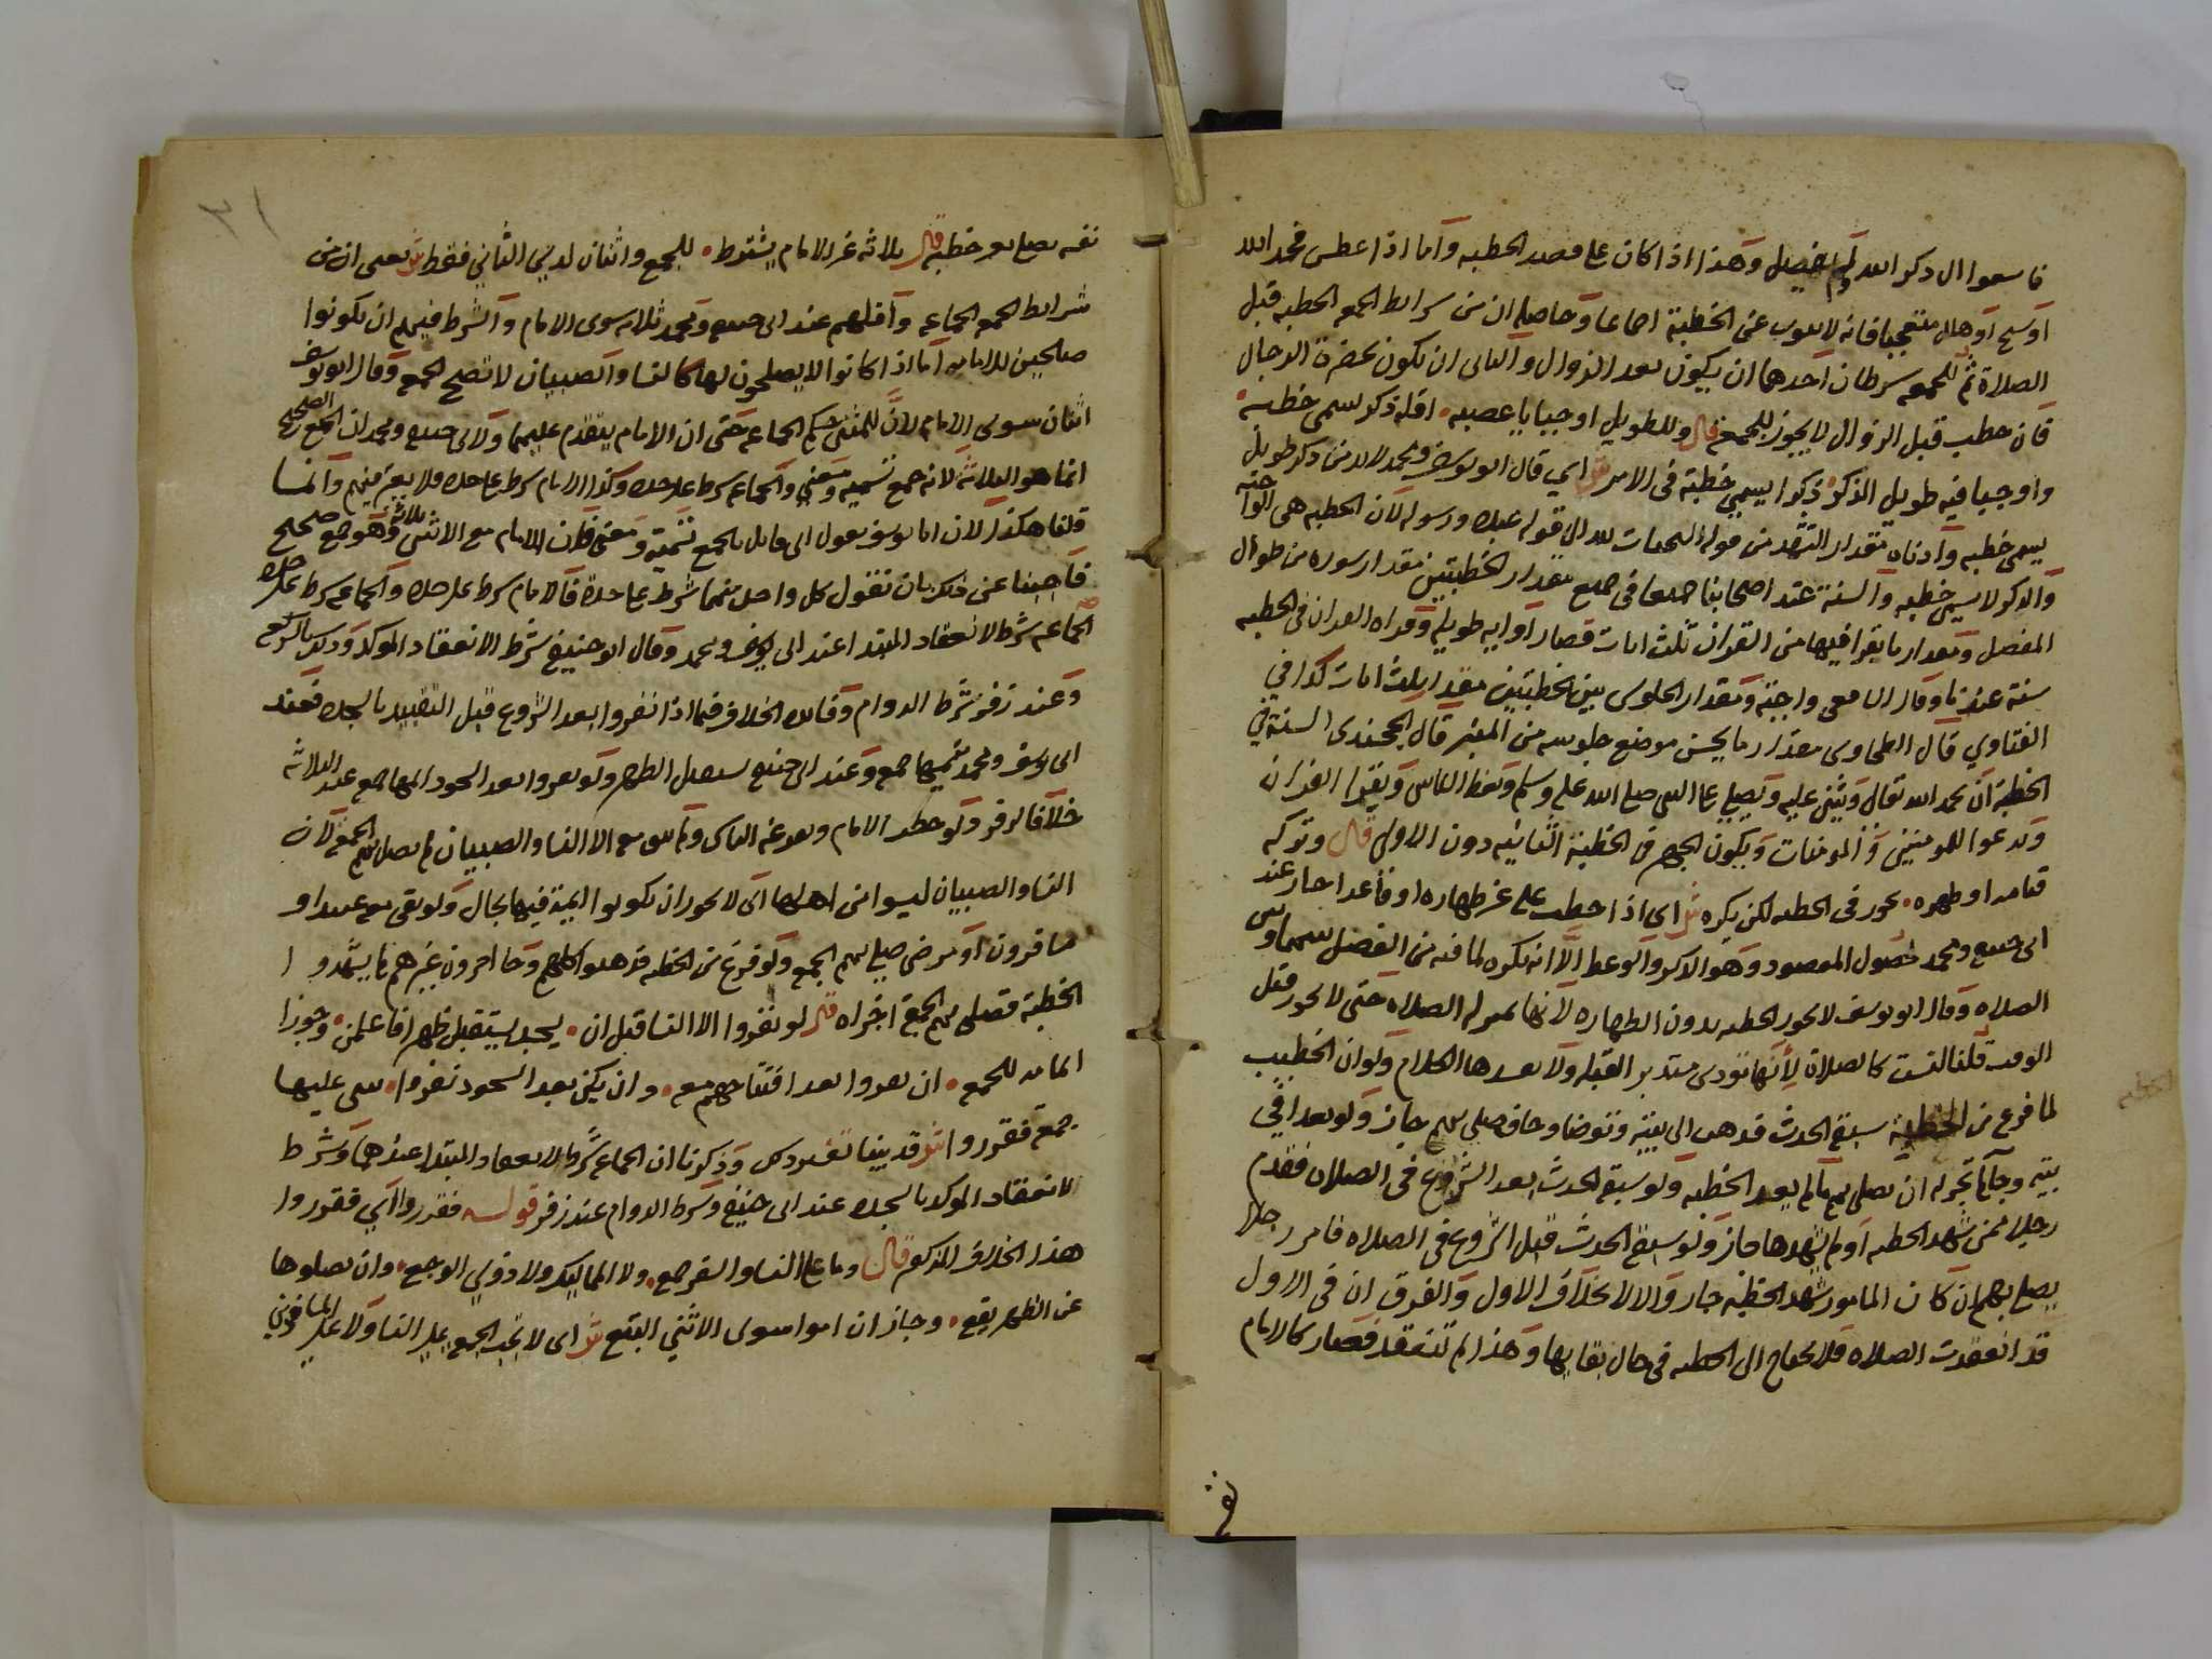 فاسعوا الى ذكر الله ولم يفصل وهذا اذا كان على قصد الخطبه واما اذا عطس فحمد الله
او سبح او هلل متعجبا فانه لا ينوب عن الخطبة اجماعا وحاصله ان من شرايط الجمعه الخطبه قبل
الصلاة ثم للجمعه شرطان احدهما ان يكون بعد الزوال والثانى ان يكون بحضرة الرجال
فان خطب قبل الزوال لا يجوز للجمعة قال وللطويل اوجبا يا عصبه اقله ذكر يسمى خطبه
واوجبا فيه طويل الذكر ذكرا يسمى خطبة فى الامر ش اي قال ابو يوسف ومحمد لابد من ذكر طويل
يسمى خطبه وادناه مقدار التشهد من قوله التحيات لله الى قوله عبده ورسوله لان الخطبه هى الواجبه
والذكر لا يسمى خطبه والسنة عند اصحابنا جميعا فى جميع مقدار الخطبتين مقدار سوره من طوال
المفصل ومقدار ما يقرا فيهما من القران ثلث ايات قصار او ايه طويله وقراه القران فى الخطبه
سنة عندنا وقال الشافعى واجبة ومقدار الجلوس بين الخطبتين مقدار ثلث ايات كذا في
الفتاوي قال الطحاوى مقدار ما يحسن موضع جلوسه من المنبر قال الخجندى السنة في
الخطبة ان يحمد الله تعالى ويثني عليه ويصلي على النبى صلى الله عليه وسلم ويعظ الناس ويقرا القران
ويدعوا للمومنين والمومنات ويكون الجهر فى الخطبة الثانيه دون الاولى قال وتركه
قيامه او طهره يجوز فى الخطبه لكن يكره ش اى اذا خطب على غير طهاره او قاعدا جاز عند
ابى حنيفه ومحمد لحصول المقصود وهو الذكر والوعظ الا انه يكره لما فيه من الفصل بينهما وبين
الصلاه وقال ابو يوسف لا يجوز الخطبه بدون الطهاره لانها بمنزله الصلاه حتى لا يجوز قبل
الوقت قلنا ليست كالصلاة لأنها تودى مستدبر القبله ولا يفسدها الكلام ولو ان الخطيب
لما فرغ من الخطبة سبقه الحدث فذهب الى بيته وتوضا وجا فصلى بهم جاز ولو تغدا في
بيته وجا لم يجز له ان يصلى بهم ما لم يعد الخطبه ولو سبقه الحدث بعد الشروع فى الصلاه فقدم
رجلا ممن شهد الخطبه او لم يشهدها جاز ولو سبقه الحدث قبل الشروع فى الصلاه فامر رجلا
يصلي بهم ان كان المامور شهد الخطبة جاز والا لا بخلاف الاول والفرق ان فى الاول
قد انعقدت الصلاه فلا يحتاج الى الخطبه فى حال بقايها وهذا لم تنعقد فصار كالامام
نفسه يصلي بغير خطبة قال ثلاثه غير الامام يشترط للجمع واثنان لدي الثاني فقط ش يعنى ان من
شرايط الجمعه الجماعه واقلهم عند ابى حنيفه ومحمد ثلاثه سوى الامام والشرط فيهم ان يكونوا
صالحين للامامه اما اذا كانوا لا يصلحون لها كالنسا والصبيان لا تصح الجمعه وقال ابو يوسف
اثنان سوى الامام لان للمثنى حكم الجماعه حتى ان الامام يتقدم عليهما ولابى حنيفه ومحمد ان الجمع الصحيح
انما هو الثلاثة لانه جمع تسمية ومعني والجماعه شرط على حده وكذا الامام شرط على حده فلا يعتبر منهم وانما
قلنا هكذا لان ابا يوسف يقول انى قايل بالجمع تسمية ومعنى فان الامام مع الاثنين ثلاثة وهو جمع صحيح
فاجبنا عن ذلك بان نقول كل واحد منهما شرط على حدة فالامام شرط على حده والجماعه شرط على حده
الجماعه شرط الانعقاد المبتدا عند ابى يوسف ومحمد وقال ابو حنيفة شرط الانعقاد الموكد وذلك بالركوع
وعند زفر شرط الدوام وفايده الخلاف فيما اذا نفروا بعد الشروع قبل التقييد بالسجده فعند
ابى يوسف ومحمد يتمها جمعه وعند ابى حنيفه يستقبل الظهر ولو نفروا بعد السجود اتمها جمعه عند الثلاثه
خلافا لزفر ولو خطب الامام ونفر عنه الناس ولم يبق معه الا النسا والصبيان لم يصل بهم الجمعه لان
النسا والصبيان ليسوا من اهلها اى لا يجوز ان يكونوا ايمة فيها بحال ولو بقى معه عبيد او
مسافرون او مرضى صلى بهم الجمعه ولو فرغ من الخطبه فذهبوا كلهم وجا اخرون غيرهم لم يشهدوا
الخطبة فصلى بهم الجمعة اجزاه قال لو نفروا الا النسا قبل ان يسجد يستقبل ظهرا فاعلمن وجوزا
اتمامه للجمعه ان نفروا بعد افتتاحهم معه وان يكن بعد السجود نفروا بنى عليها
جمعة فقرروا ش قد بينا تفسير ذلك وذكرنا ان الجماعه شرط الانعقاد المبتدا عندهما وشرط
الانعقاد الموكد بالسجده عند ابى حنيفة وشرط الدوام عند زفر قوله فقرروا اي فقرروا
هذا الخلاف المذكور قال وما على النسا والسفر جمعه ولا المماليك ولا ذوي الوجع وان يصلوها
عن الظهر يقع وجاز ان اموا سوى الانثى البقع ش اى لا تجب الجمعه على النسا ولا على المسافرين